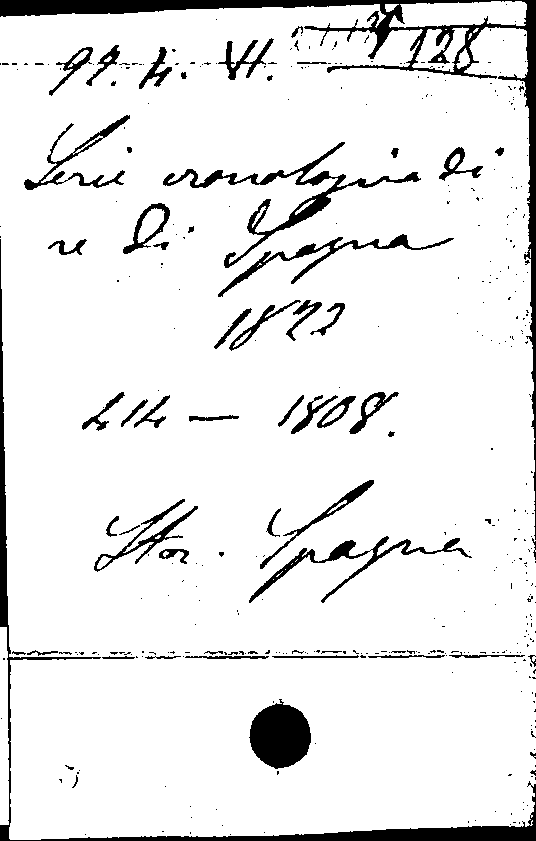 128
99. 4. VI.
Serie cronologica di
re Di Spagna
1872
414 — 1808.
Stor. Spagna